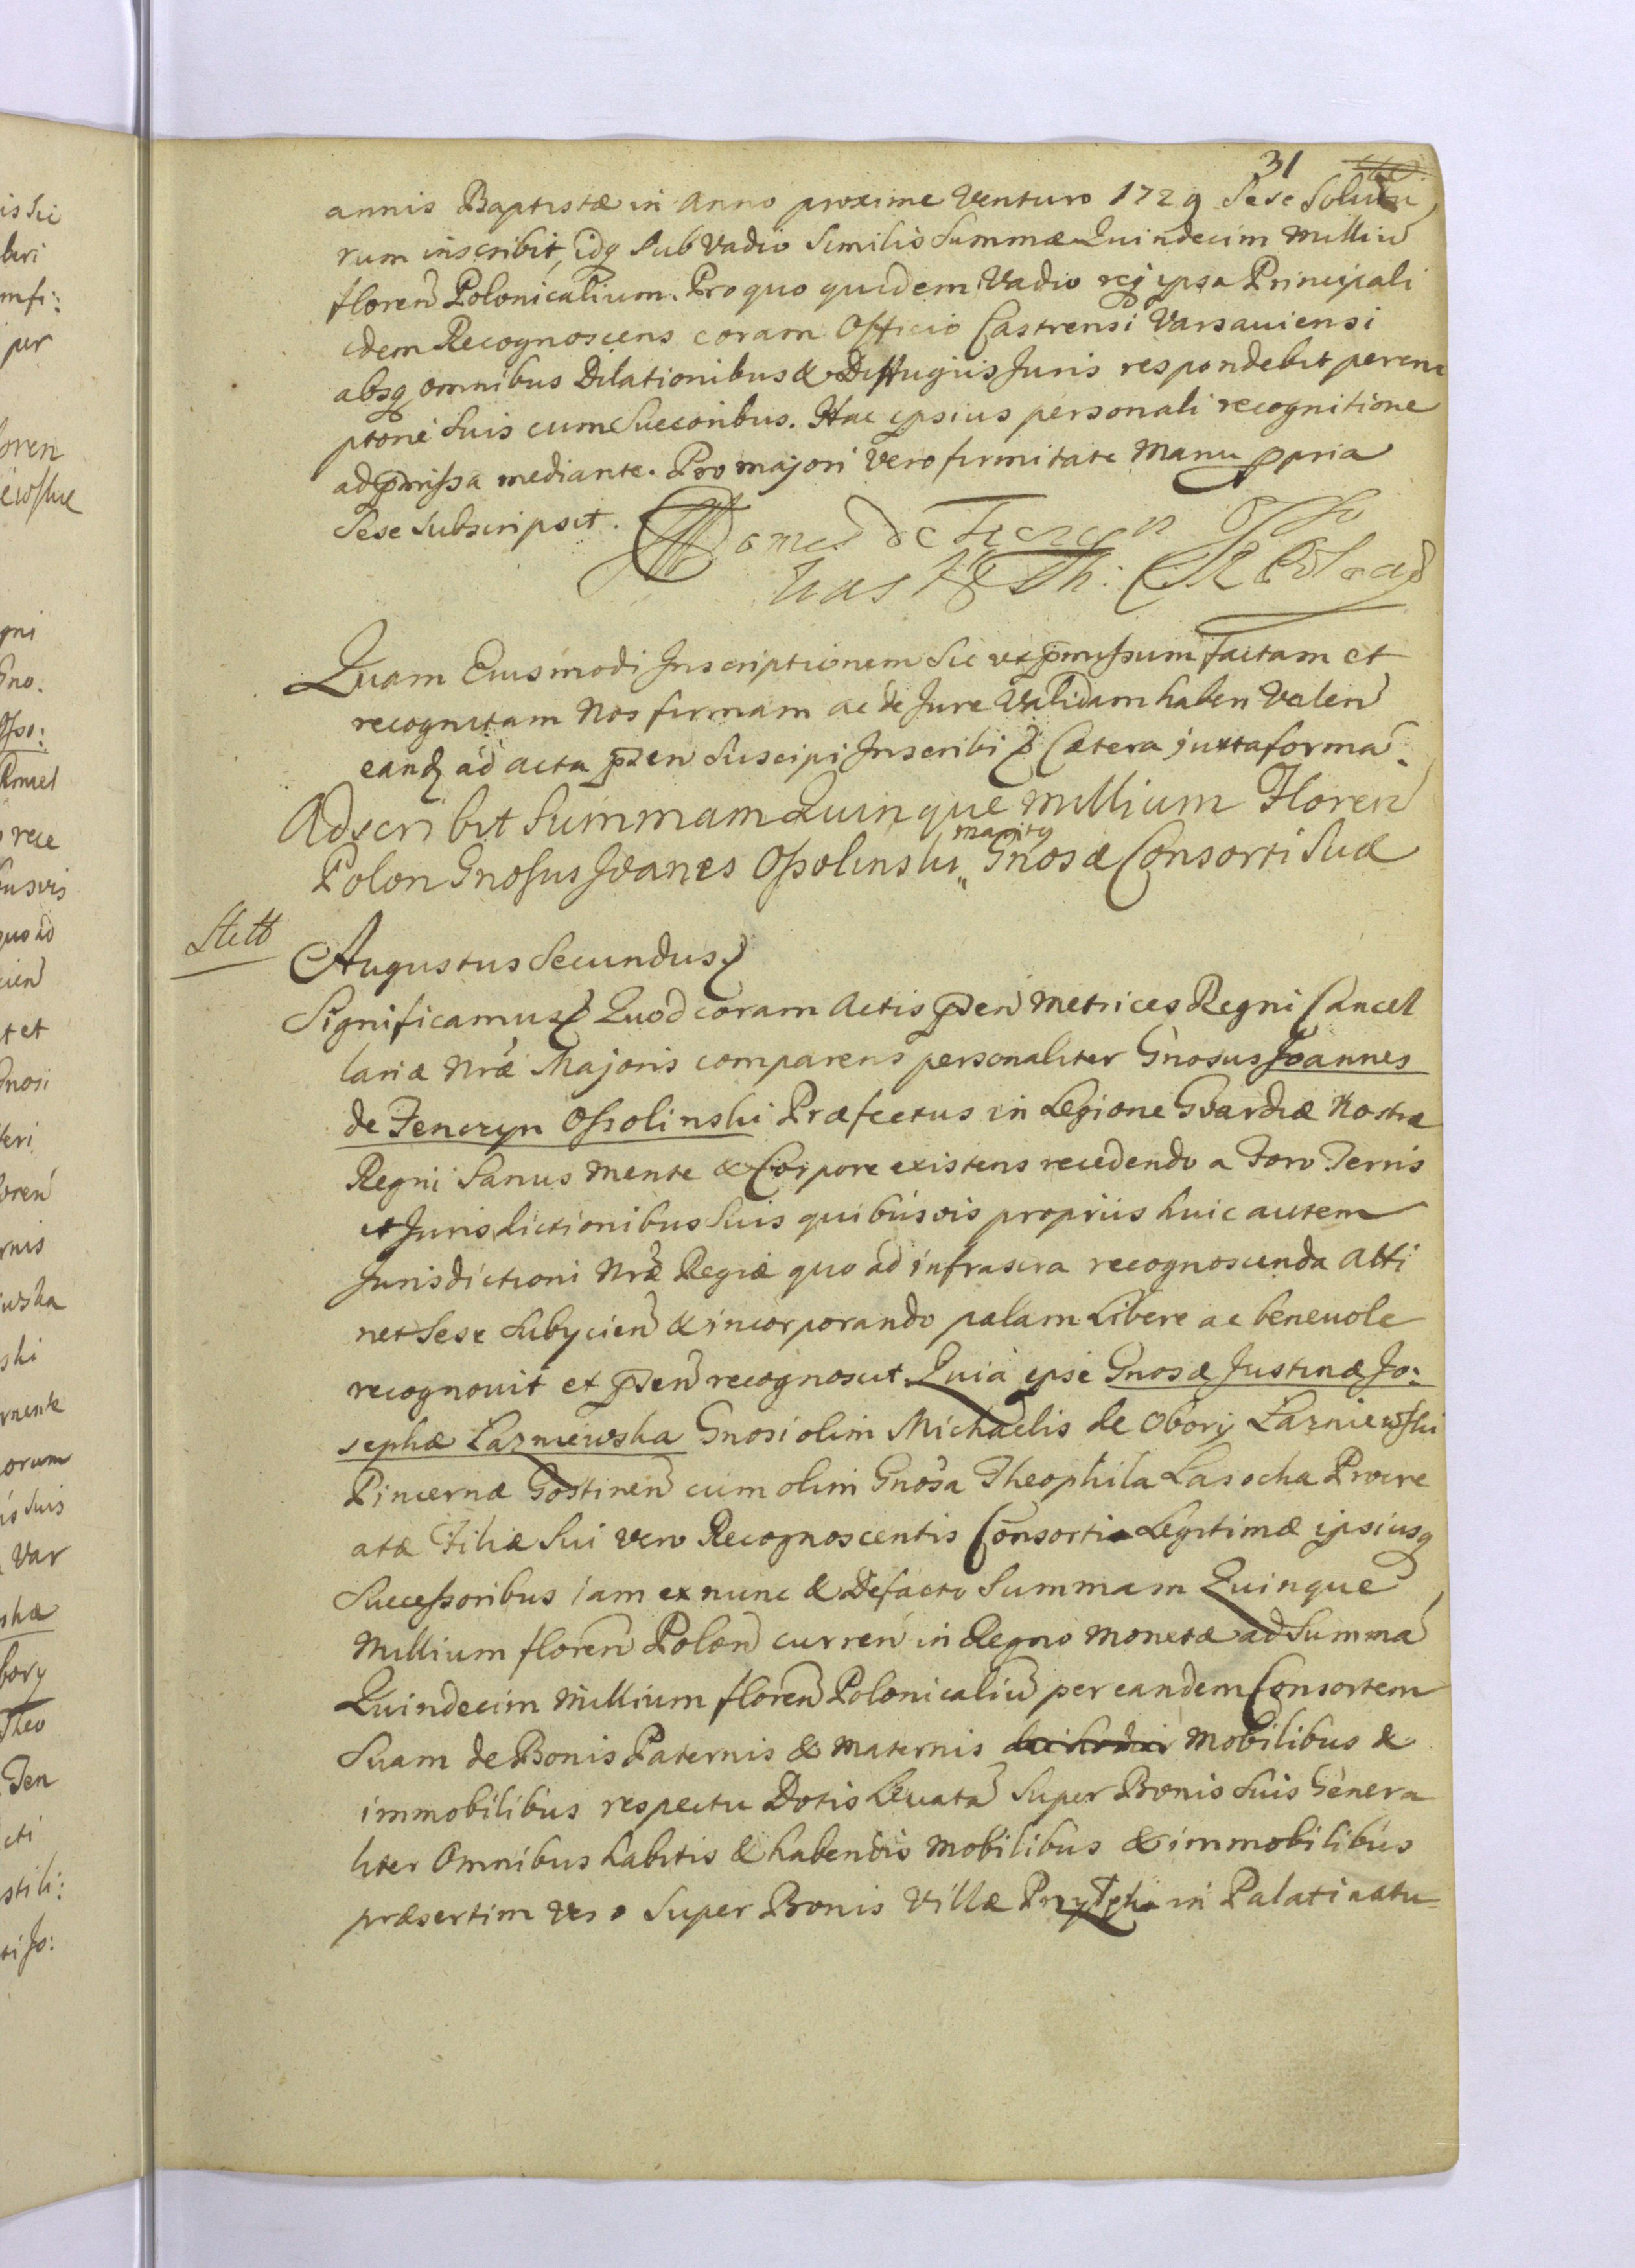 31
annis Baptistæ in Anno proxime Venturo 1729 Sese Solutu
rum inscribit, idq Sub Vadio Similis Summæ Quindecim Milliu
floren Polonicalium. Pro quo quidem Vadio req ipsa Principali
idem Recognoscens coram Officio Castrensi Varsauiensi
absq omnibus Dilationibus & Diffugiis Juris respondebit perem
ptorie Suis cum Succoribus. Hac ipsius personali recognitione
ad præmissa mediante. Pro majori vero firmitate Manu ppria
Sese Subscripsit.
de Tenczyn
Quam Eiusmodi Inscriptionem Sic ut præmissum factam et
recognitam Nos firmam ac de Jure Validam haberi Volen
eand ad acta pnsen Suscipi Inscribi & Cætera juxta forma.
Adscribit Summam Quinque Millium Floren
marity
Polon Gnosus Joanes Ossolinski Gnosæ Consorti Suæ
Augustus Secundus
Significamus Quod coram Actis pnsen Metrices Regni Cancel
lariæ Nræ Majoris comparens personaliter Gnosus Joannes
de Tenczyn Ossolinski Præfectus in Legione Gvardiæ Nostræ
Regni Sanus Mente & Corpore existens recedendo a Foro Terris
et Jurisdictionibus Suis quibusvis propriis huic autem
Jurisdictioni Nræ Regiæ quo ad infrascra recognoscenda atti
net Sese Subycien & incorporando palam Libere ac beneuole
recognouit et pnsen recognoscit. Quia ipse Gnosæ Justinæ Jo:
sephæ Lazniewska Gnosi olim Michaelis de Obory Lazniewski
Pincernæ Gostinen cum olim Gnosa Theophila Lasocka Procre
atæ Filiæ Sui vero Recognoscentis Consorti Legitimæ ipsiusq
Successoribus iam ex nunc & Defacto Summam Quinque
Millium floren Polon curren in Regno Monetæ ad Summa
Quindecim Millium floren Polonicaliu per eandem Consortem
Suam de Bonis Paternis & Maternis Mobilibus &
immobilibus respectu Dotis Leuata Super Bonis Suis Genera
liter Omnibus habitis & habendis Mobilibus & immobilibus
præsertim vero Super Bonis Villæ in Palatinatu